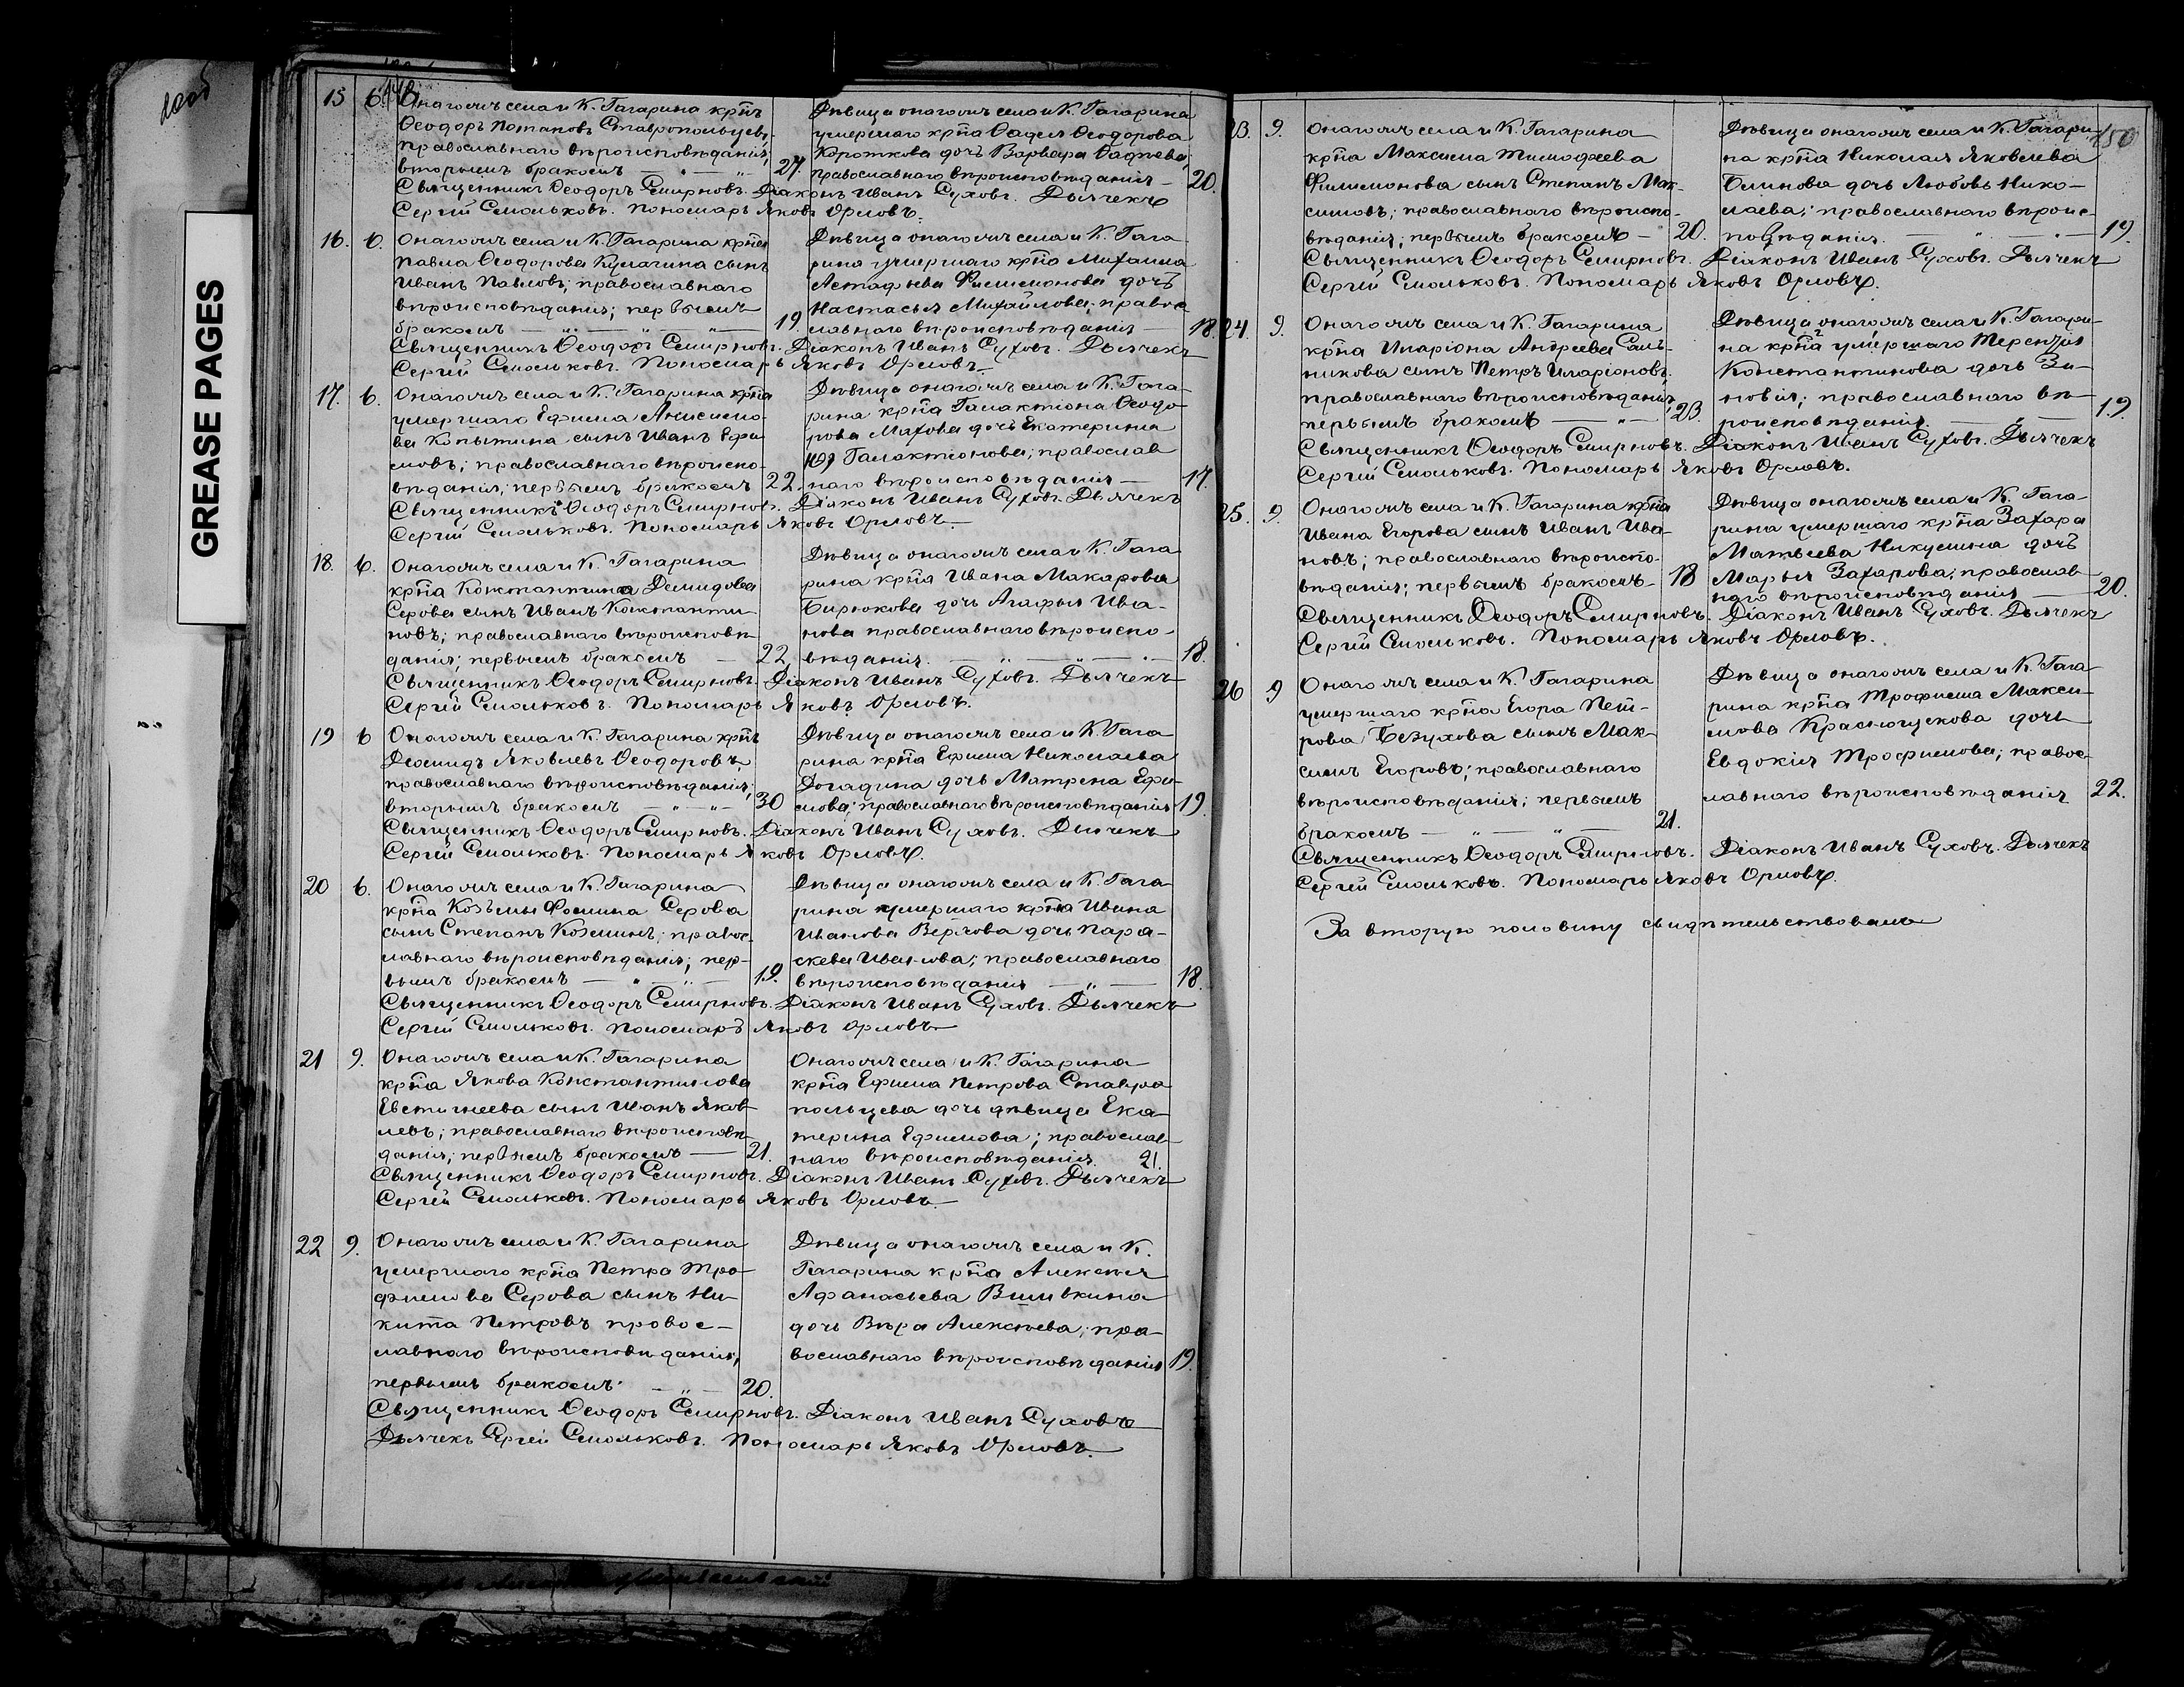 GREASE PAGES
15 6. Онагожъ села и К. Гагарина кр҃нъ
Ѳеодоръ Потаповъ Ставропольцевъ,
православнаго вѣроисповѣданія;
вторымъ бракомъ — „ — „ 27.
Дѣвица онагожъ села и К. Гагарина
умершаго кр҃на Ѳадея Ѳеодорова
Короткова дочь Варвара Ѳадѣева;
православнаго вѣроисповѣданія — 20.
Священникъ Ѳеодоръ Смирновъ. Діаконъ Иванъ Суховъ. Дьячекъ
Сергій Смольковъ. Пономарь Яковъ Орловъ.
16. 6. Онагожъ села и К. Гагарина кр҃на
Павла Ѳеодорова Кулагина сынъ
Иванъ Павловъ; православнаго
вѣроисповѣданія; первымъ
бракомъ — „ — „ — „ — 19.
Дѣвица онагожъ села и К. Гага-
рина умершаго кр҃на Михаила
Астафьева Филимонова дочь
Настасья Михайлова; правос-
лавнаго вѣроисповѣданія — 18.
Священникъ Ѳеодоръ Смирновъ. Діаконъ Иванъ Суховъ. Дьячекъ
Сергій Смольковъ. Пономарь Яковъ Орловъ.
17. 6. Онагожъ села и К. Гагарина кр҃на
умершаго Ефима Анисимо-
ва Копытина сынъ Иванъ Ефи-
мовъ; православнаго вѣроиспо-
вѣданія; первымъ бракомъ 22.
Дѣвица онагожъ села и К. Гага-
рина кр҃на Галактіона Ѳеодо-
рова Махова дочь Екатерина
Галактіонова; православ-
наго вѣроисповѣданія — 17.
Священникъ Ѳеодоръ Смирновъ. Діаконъ Иванъ Суховъ. Дьячекъ
Сергій Смольковъ. Пономарь Яковъ Орловъ.
18. 6. Онагожъ села и К. Гагарина
кр҃на Константина Демидова
Серова сынъ Иванъ Константи-
новъ; православнаго вѣроисповѣ-
данія; первымъ бракомъ — 22
Дѣвица онагожъ села и К. Гага-
рина кр҃на Ивана Макарова
Бирюкова дочь Агафья Ива-
нова православнаго вѣроиспо-
вѣданія. — „ — „ — 18.
Священникъ Ѳеодоръ Смирновъ. Діаконъ Иванъ Суховъ. Дьячекъ
Сергій Смольковъ. Пономарь Яковъ Орловъ.
19 6 Онагожъ села и К. Гагарина кр҃нъ
Діомидъ Яковлевъ Ѳеодоровъ,
православнаго вѣроисповѣданія;
вторымъ бракомъ — „ — „ — 30
Дѣвица онагожъ села и К. Гага-
рина кр҃на Ефима Николаева
Догадина дочь Матрена Ефи-
мова; православнаго вѣроисповѣданія 19.
Священникъ Ѳеодоръ Смирновъ. Діаконъ Иванъ Суховъ. Дьячекъ
Сергій Смольковъ. Пономарь Яковъ Орловъ.
20 6. Онагожъ села и К. Гагарина
кр҃на Козьмы Фомина Серова
сынъ Степанъ Козминъ; правос-
лавнаго вѣроисповѣданія; пер-
вымъ бракомъ — „ — „ — 19.
Дѣвица онагожъ села и К. Гага-
рина умершаго кр҃на Ивана
Иванова Верхова дочь Пара-
скева Иванова; православнаго
вѣроисповѣданія — „ — 18.
Священникъ Ѳеодоръ Смирновъ. Діаконъ Иванъ Суховъ. Дьячекъ
Сергій Смольковъ. Пономарь Яковъ Орловъ
21 9. Онагожъ села и К. Гагарина
кр҃на Якова Константинова
Евстигнеева сынъ Иванъ Яков-
левъ; православнаго вѣроисповѣ-
данія; первымъ бракомъ — 21.
Онагожъ села и К. Гагарина
кр҃на Ефима Петрова Ставро-
польцева дочь дѣвица Ека-
терина Ефимова; православ-
наго вѣроисповѣданія. 21.
Священникъ Ѳеодоръ Смирновъ. Діаконъ Иванъ Суховъ. Дьячекъ
Сергій Смольковъ. Пономарь Яковъ Орловъ.
22 9. Онагожъ села и К. Гагарина
умершаго кр҃на Петра Тро-
фимова Серова сынъ Ни-
кита Петровъ правос-
лавнаго вѣроисповѣданія;
первымъ бракомъ — „ — 20.
Дѣвица онагожъ села и К.
Гагарина кр҃на Алексѣя
Афанасьева Вшивкина
дочь Вѣра Алексѣева; пра-
вославнаго вѣроисповѣданія 19.
Священникъ Ѳеодоръ Смирновъ. Діаконъ Иванъ Суховъ
Дьячекъ Сергій Смольковъ. Пономарь Яковъ Орловъ.
150
23. 9. Онагожъ села и К. Гагарина
кр҃на Максима Тимофеева
Филимонова сынъ Степанъ Мак-
симовъ; православнаго вѣроиспо-
вѣданія; первымъ бракомъ — 20.
Дѣвица онагожъ села и К. Гагари-
на кр҃на Николая Яковлева
Блинова дочь Любовь Нико-
лаева; православнаго вѣроис-
повѣданія. — „ — „ — 19.
Священникъ Ѳеодоръ Смирновъ. Діаконъ Иванъ Суховъ. Дьячекъ
Сергій Смольковъ. Пономарь Яковъ Орловъ.
24. 9. Онагожъ села и К. Гагарина
кр҃на Иларіона Андреева Саль-
никова сынъ Петръ Иларіоновъ,
православнаго вѣроисповѣданія,
первымъ бракомъ — „ — 23.
Дѣвица онагожъ села и К. Гагари-
на кр҃на умершаго Терентія
Константинова дочь Зи-
новія; православнаго вѣ-
роисповѣданія. — „ — 19.
Священникъ Ѳеодоръ Смирновъ. Діаконъ Иванъ Суховъ. Дьячекъ
Сергій Смольковъ. Пономарь Яковъ Орловъ.
25. 9. Онагожъ села и К. Гагарина кр҃на
Ивана Егорова сынъ Иванъ Ива-
новъ; православнаго вѣроиспо-
вѣданія; первымъ бракомъ — 18
Дѣвица онагожъ села и К. Гага-
рина умершаго кр҃на Захара
Матвеева Никулина дочь
Марья Захарова; православ-
наго вѣроисповѣданія — 20.
Священникъ Ѳеодоръ Смирновъ. Діаконъ Иванъ Суховъ. Дьячекъ
Сергій Смольковъ. Пономарь Яковъ Орловъ.
26 9 Онагожъ села и К. Гагарина
умершаго кр҃на Егора Пет-
рова Безухова сынъ Мак-
симъ Егоровъ; православнаго
вѣроисповѣданія; первымъ
бракомъ — „ — „ — 21.
Дѣвица онагожъ села и К. Гага-
рина кр҃на Трофима Макси-
мова Краснощекова дочь
Евдокія Трофимова; правос-
лавнаго вѣроисповѣданія 22.
Священникъ Ѳеодоръ Смирновъ. Діаконъ Иванъ Суховъ. Дьячекъ
Сергій Смольковъ. Пономарь Яковъ Орловъ.
За вторую половину свидѣтельствовалъ